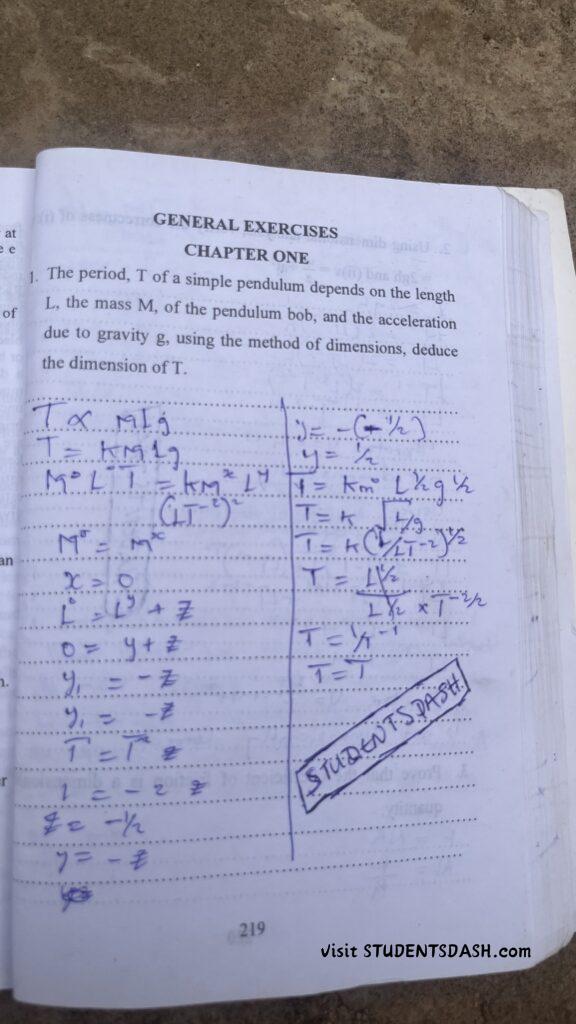 at
e e
of
an
n.
er
GENERAL EXERCISES
CHAPTER ONE
1. The period, T of a simple pendulum depends on the length
L, the mass M, of the pendulum bob, and the acceleration
due to gravity g, using the method of dimensions, deduce
the dimension of T.
T ∝ MLg
T = KMLg
M⁰ L⁰ T = KMˣ Lʸ
(LT⁻²)ᶻ
M⁰ = Mˣ
x = 0
L⁰ = Lʸ + z
0 = y + z
y, = -z
y, = -z
1 = -2 z
z = -1/2
y = -z
y = -(-1/2)
y = 1/2
T = Km⁰ L 1/2 g 1/2
T = K √L/g
T = K (L/LT⁻²)1/2
T = L1/2
L 1/2 × T⁻2/2
T = 1/T⁻¹
T = T
STUDENTSDASH.
219
visit STUDENTSDASH.com